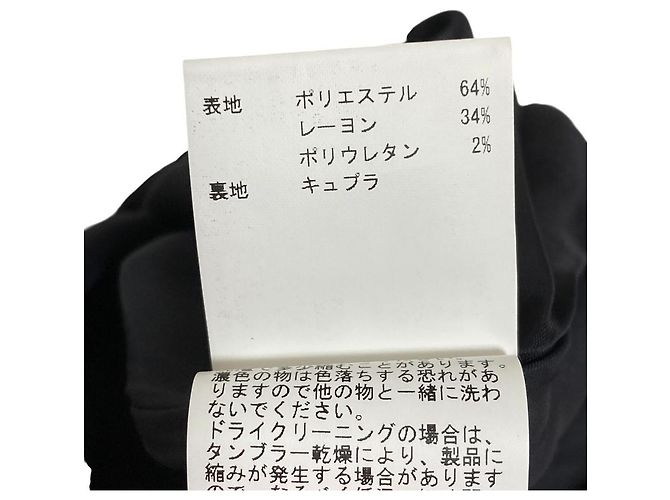 表地 ポリエステル 64%
レーヨン 34%
ポリウレタン 2%
裏地 キュプラ
濃色の物は色落ちする恐れがあ
りますので他の物と一緒に洗わ
ないでください。
ドライクリーニングの場合は、
タンブラー乾燥により、製品に
縮みが発生する場合があります